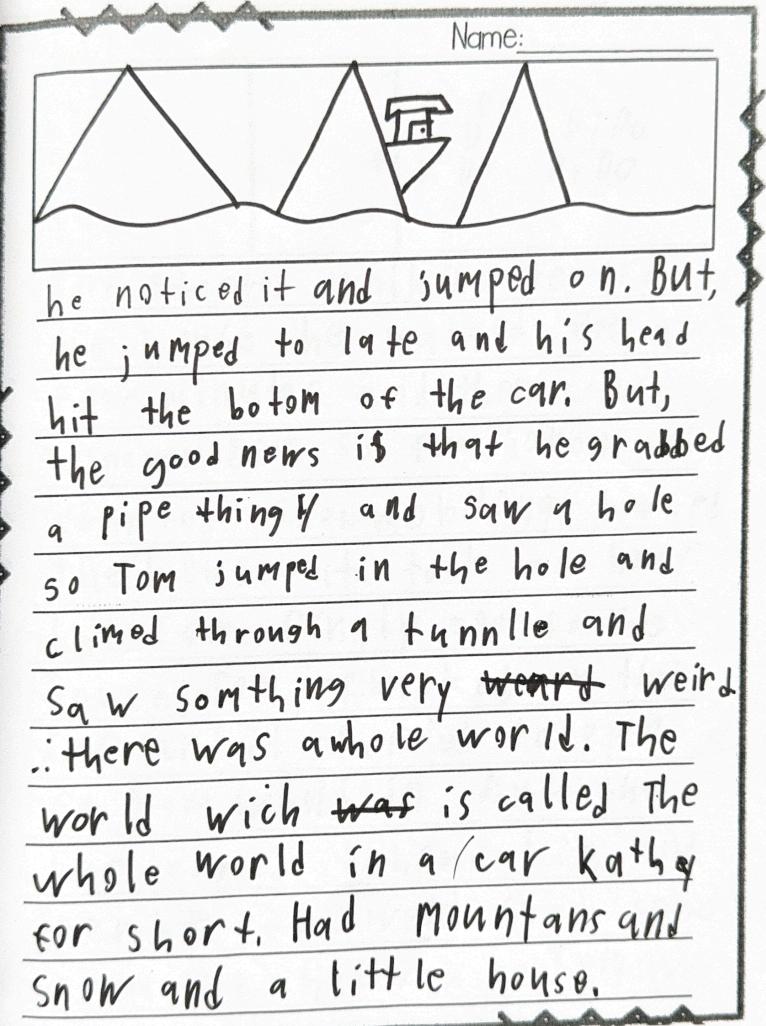 Name:
he noticed it and jumped on. But,
he jumped to late and his head
hit the botom of the car. But,
the good news is that he grabbed
a pipe thingy and saw a hole
so Tom jumped in the hole and
climed through a tunnlle and
saw somthing very weard weird
..there was a whole world. The
world wich was is called The
whole world in a car kathy
for short. Had mountans and
snow and a little house.